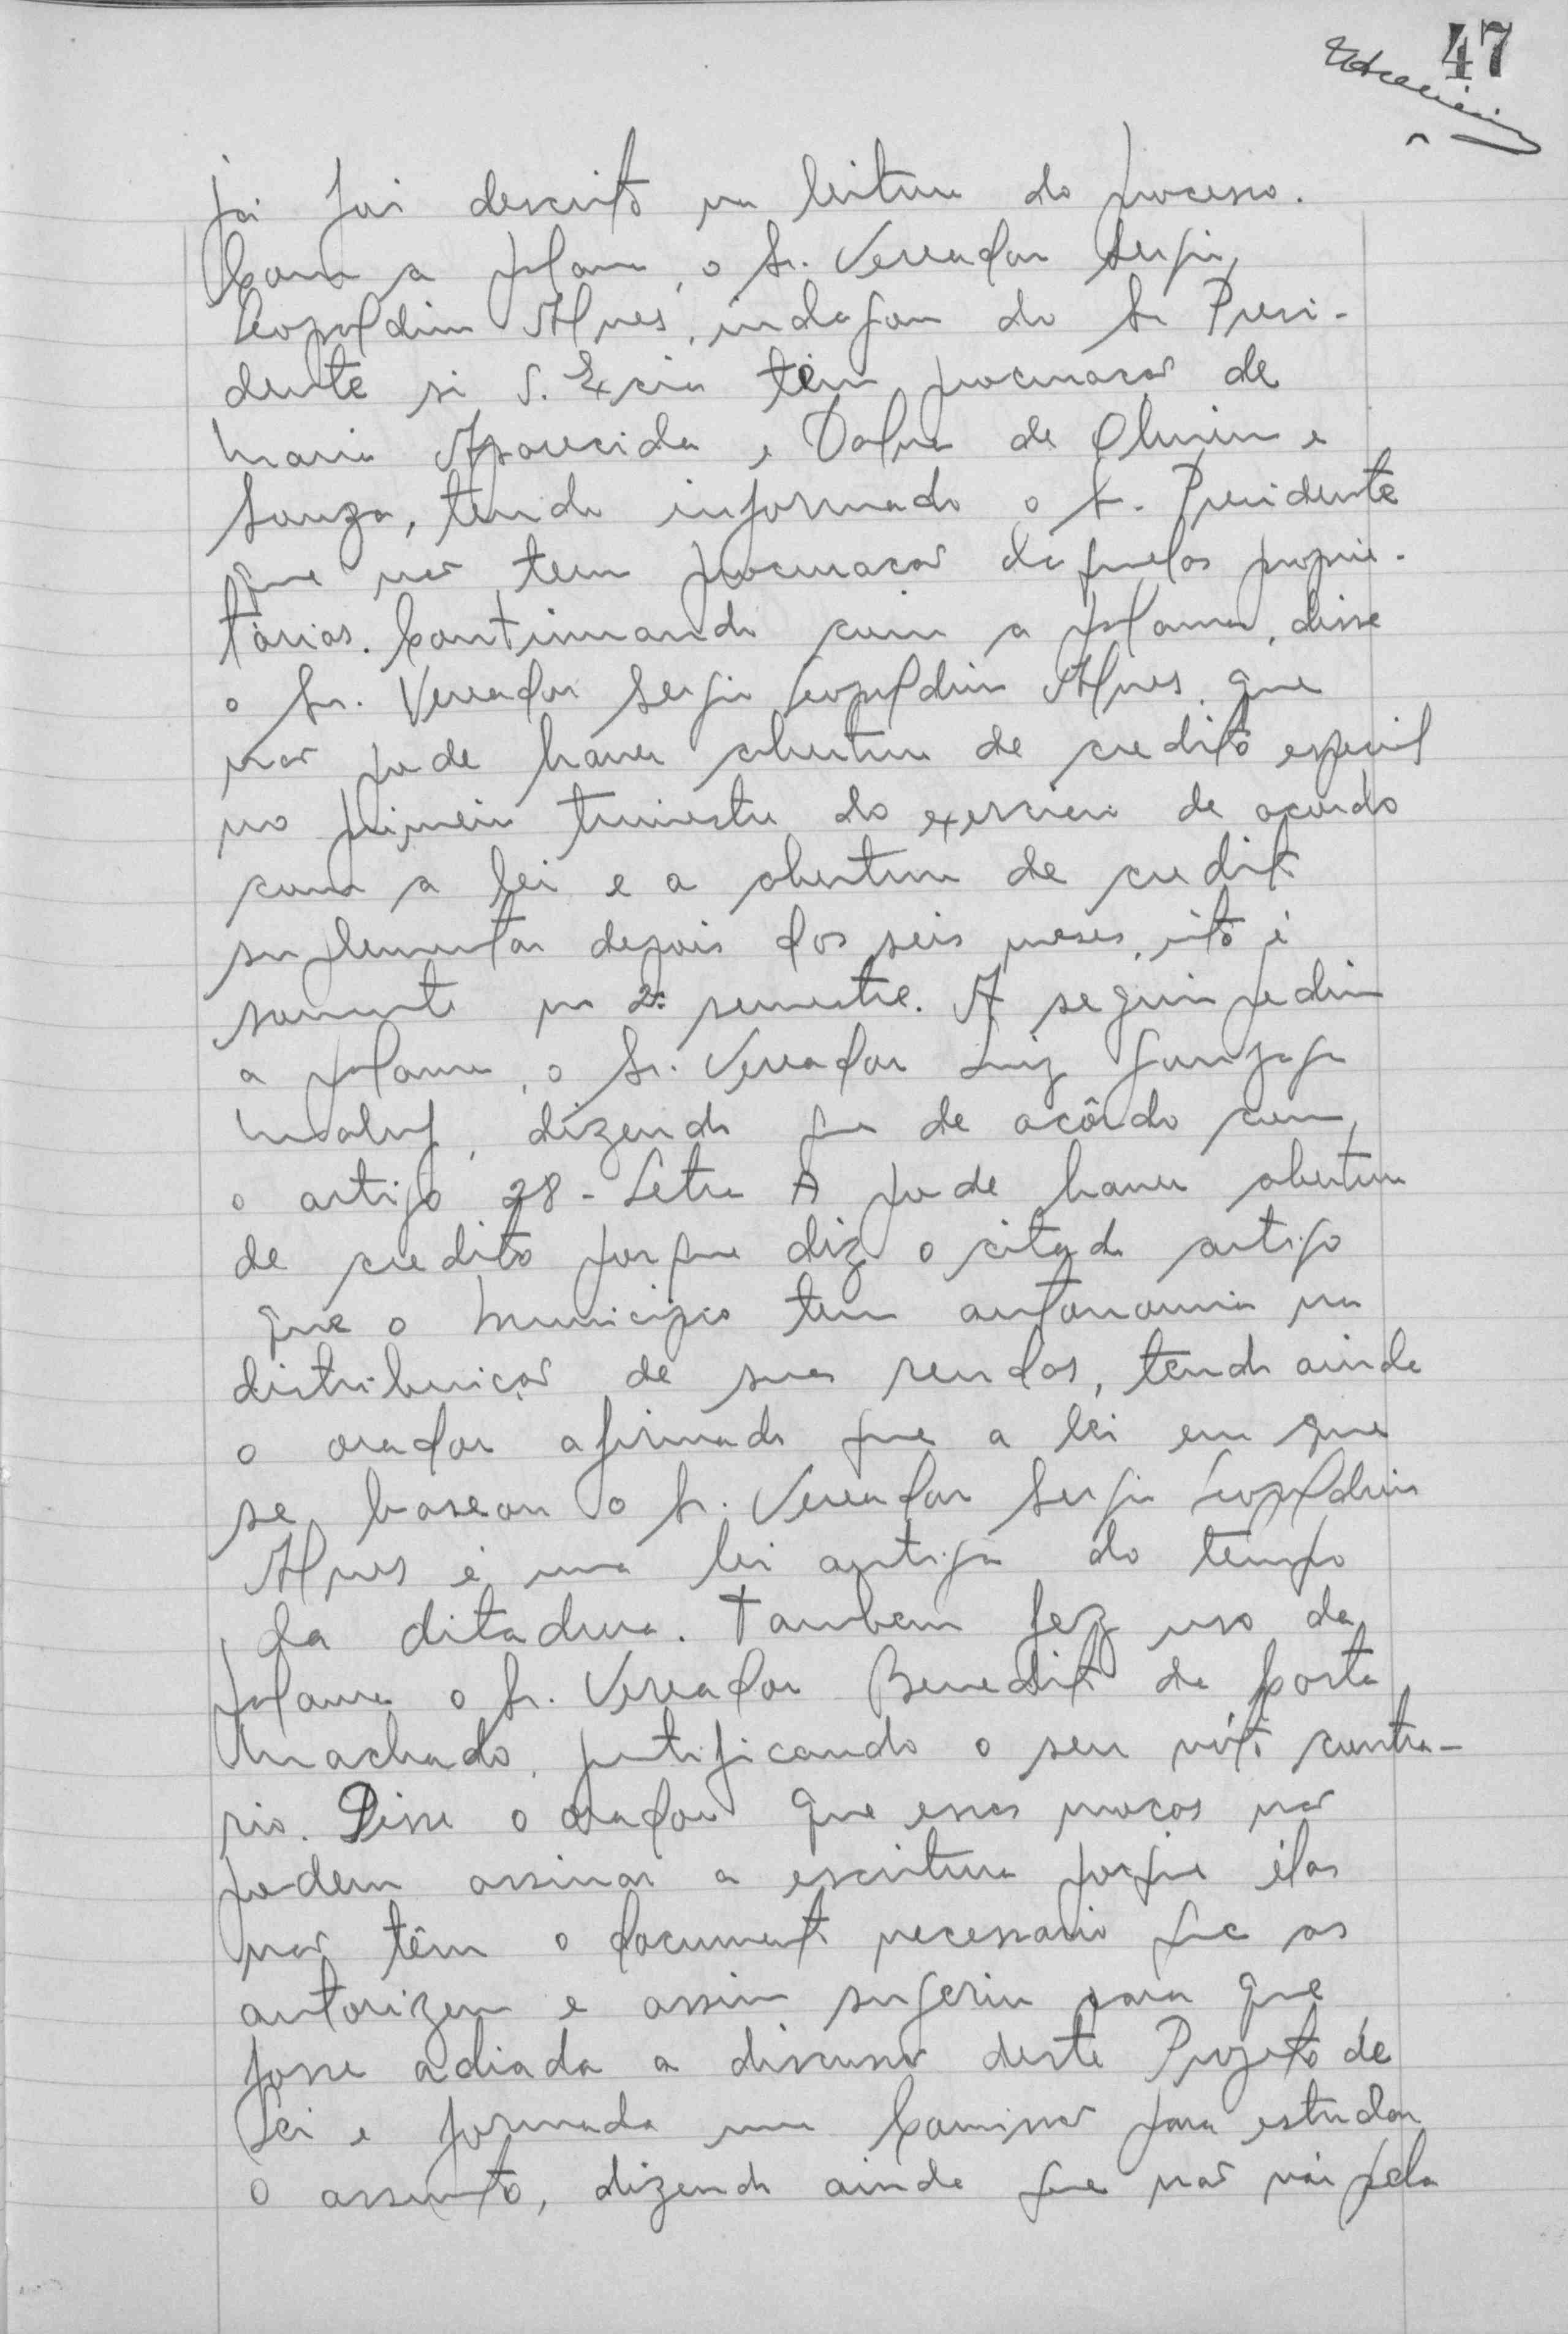 47
já foi descrito na leitura do processo.
Com a palavra, o Sr. Vereador Sergio
Leopoldino Alves, indagou do Sr Presi-
dente si S. Excia têm procuração de
Maria Aparecida e Dalva de Oliveira e
Souza, tendo informado o Sr. Presidente
que não tem procuração daquelas proprie-
tárias. Continuando com a palavra, disse
o Sr. Vereador Sergio Leopoldino Alves, que
não pode haver abertura de credito especial
no primeiro trimestre do exercicio de acordo
com a lei e a abertura de credito
suplementar depois dos seis meses, isto é
somente no 2º semestre. A seguir pediu
a palavra, o Sr. Vereador Luiz Gonzaga
Maluf, dizendo que de acôrdo com
o artigo 28 - Letra A pode haver abertura
de credito porque diz o citado artigo
que o Municipio tem autonomia na
distribuição de suas rendas, tendo ainda
o orador afirmado que a lei em que
se baseou o Sr. Vereador Sergio Leopoldino
Alves é uma lei antiga do tempo
da ditadura. Tambem fez uso da
palavra o Sr. Vereador Benedito da Costa
Machado, justificando o seu vóto contra-
rio. Disse o orador que essas moças não
podem assinar a escritura porque élas
não têm o documento necessario que as
autorizem e assim sugeriu para que
fosse adiada a discussão deste Projeto de
Lei e formada uma Comissão para estudar
o assunto, dizendo ainda que não vái pela